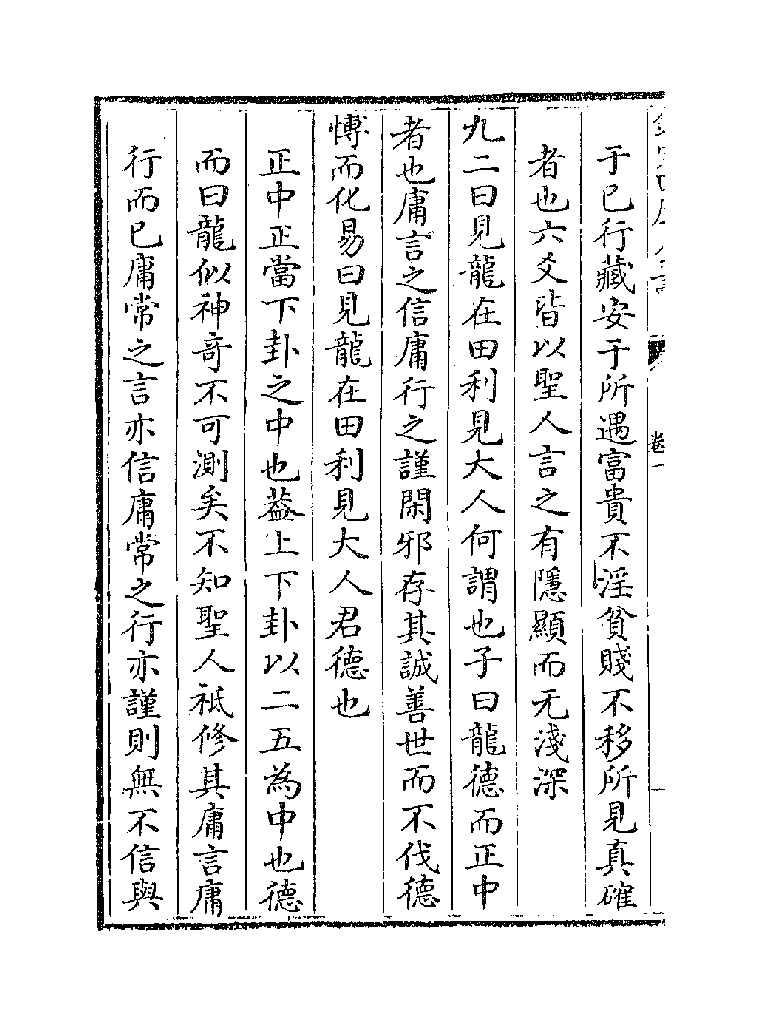 卷一
于已行藏安于所遇富貴不淫貧賤不移所見真確
者也六爻皆以聖人言之有隱顯而无淺深
九二曰見龍在田利見大人何謂也子曰龍德而正中
者也庸言之信庸行之謹閑邪存其誠善世而不伐德
博而化易曰見龍在田利見大人君德也
正中正當下卦之中也葢上下卦以二五為中也德
而曰龍似神奇不可測矣不知聖人祗修其庸言庸
行而已庸常之言亦信庸常之行亦謹則無不信與